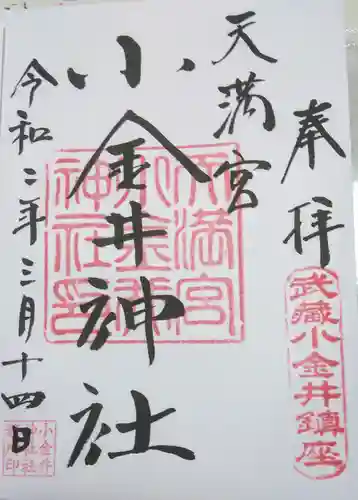 奉拝
武蔵小金井鎮座
天満宮
小金井神社
天満宮小金井神社印
令和二年三月十四日
小金井神社社務所印